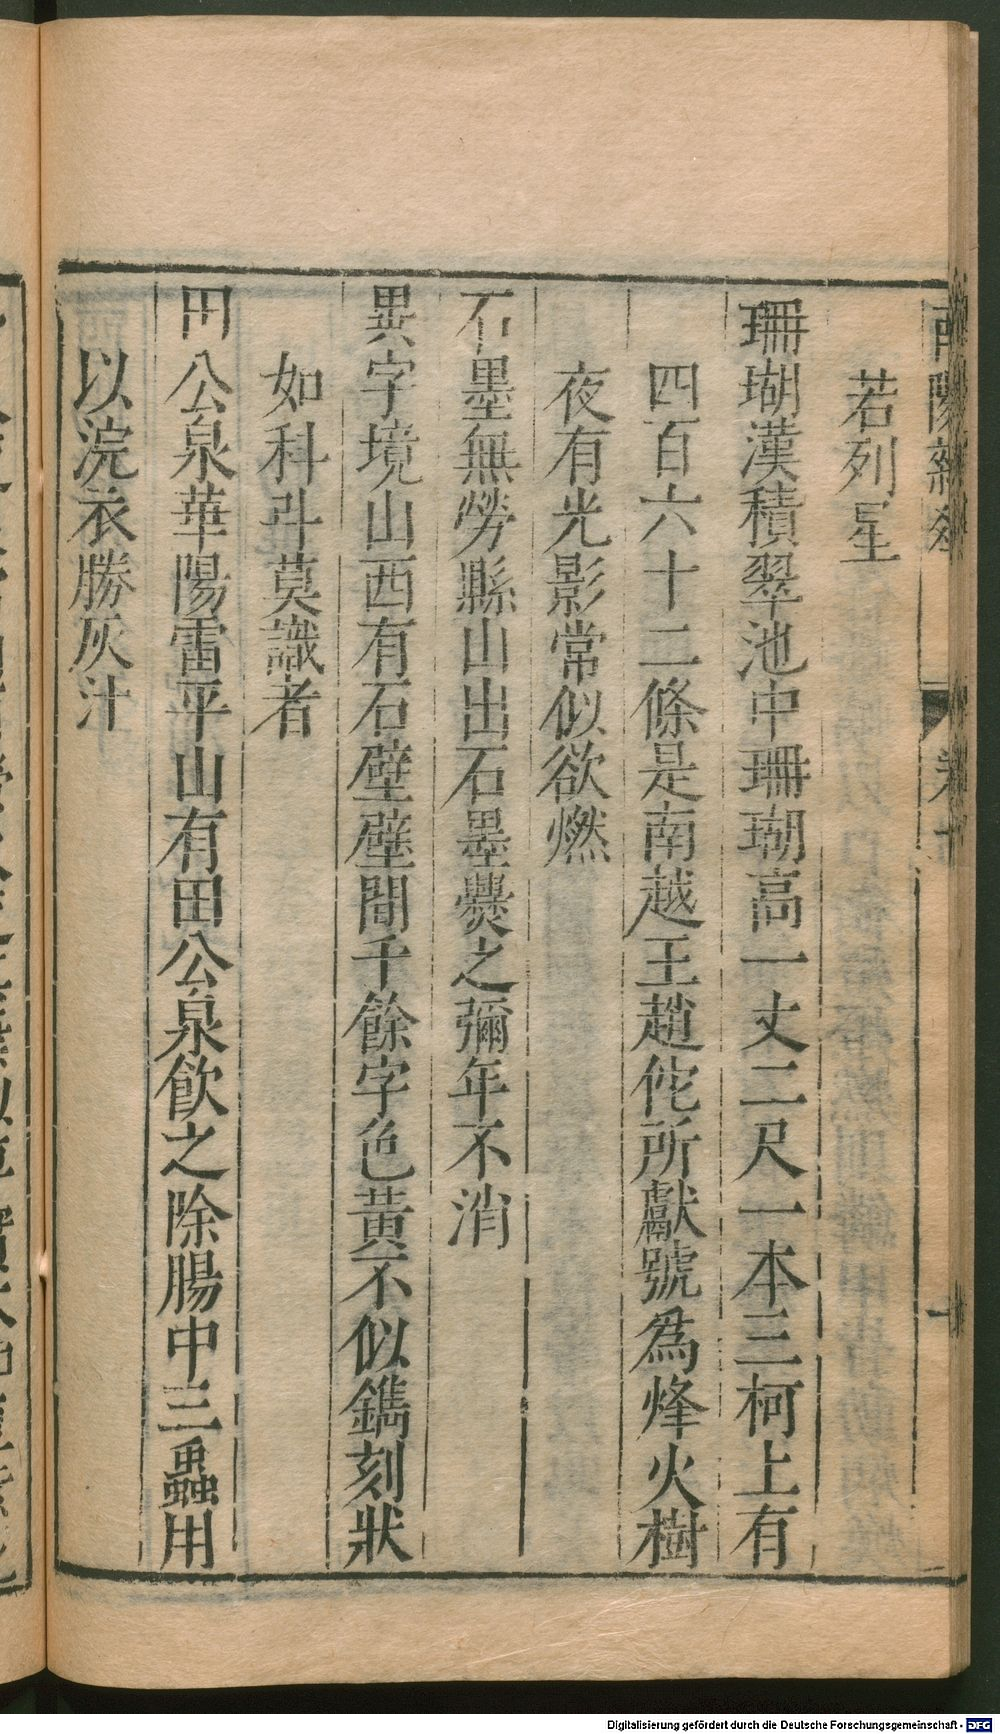 若列星
珊瑚漢積翠池中珊瑚高一丈二尺一本三柯上有
四百六十二條是南越王趙佗所獻號為烽火樹
夜有光影常似欲燃
石墨無勞縣山出石墨爨之彌年不消
異字境山西有石壁壁間千餘字色黃不似鐫刻狀
如科斗莫識者
田公泉華陽雷平山有田公泉飲之除腸中三蟲用
以浣衣勝灰汁
Digitalisierung gefördert durch die Deutsche Forschungsgemeinschaft - DFG